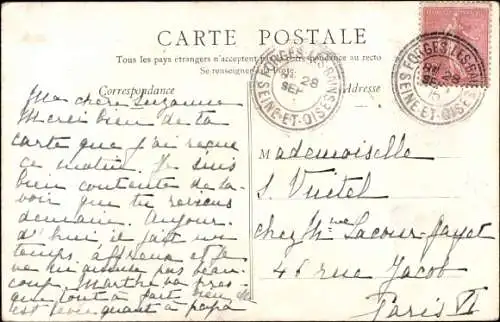 CARTE POSTALE
Tous les pays étrangers n'acceptent pas la correspondance au recto
Se renseigner à la Poste.
Correspondance
Adresse
FORGES LES BAINS
28
SEPT
SEINE-ET-OISE
FORGES LES BAINS
28
SEINE-ET-OISE
Ma chère Suzanne
Merci bien de ta
carte que j'ai reçue
ce matin. Je suis
bien contente de sa-
voir que tu reviens
demain. Aujour
d'hui il fait un
temps affreux et je
ne m'amuse pas beau-
coup. Marthe va pres-
que tout à fait bien, elle
est levée quant à papa
Mademoiselle
S. Vuctel
chez Mme Lacour-Gayet
46 rue Jacob
Paris VI